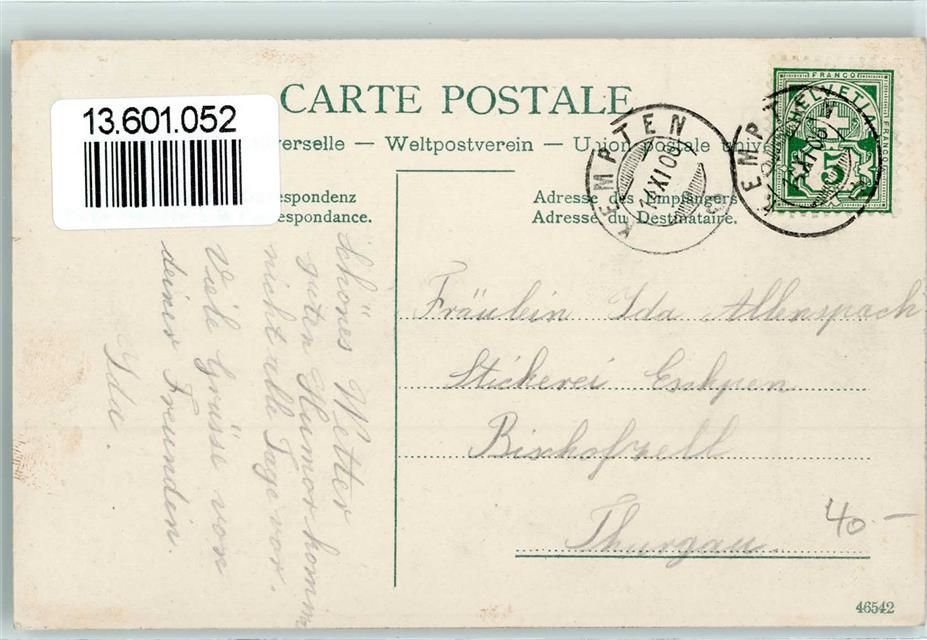 13.601.052
CARTE POSTALE
erselle — Weltpostverein — Union postale unive
espondenz
espondance.
Adresse des Empfängers
Adresse du Destinataire.
KEMPTEN
XI 05
KEMPTEN
XI 05
FRANCO
HELVETIA
FRANCO
5
Schönes Wetter
guten Humor komm
nicht alle Tage vor.
Viele Grüsse von
deiner Freundin.
Ida.
Fräulein Ida Allenspach
Stickerei
Bischofzell
Thurgau.
40.—
46542